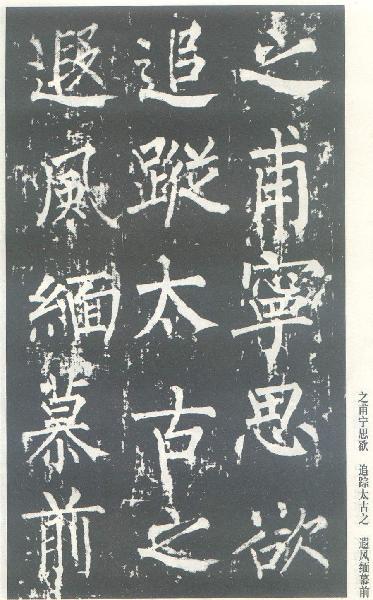 之甫寧思欲
追蹤太古之
遐風緬慕前
之甫宁思欲　追踪太古之　遐风缅慕前